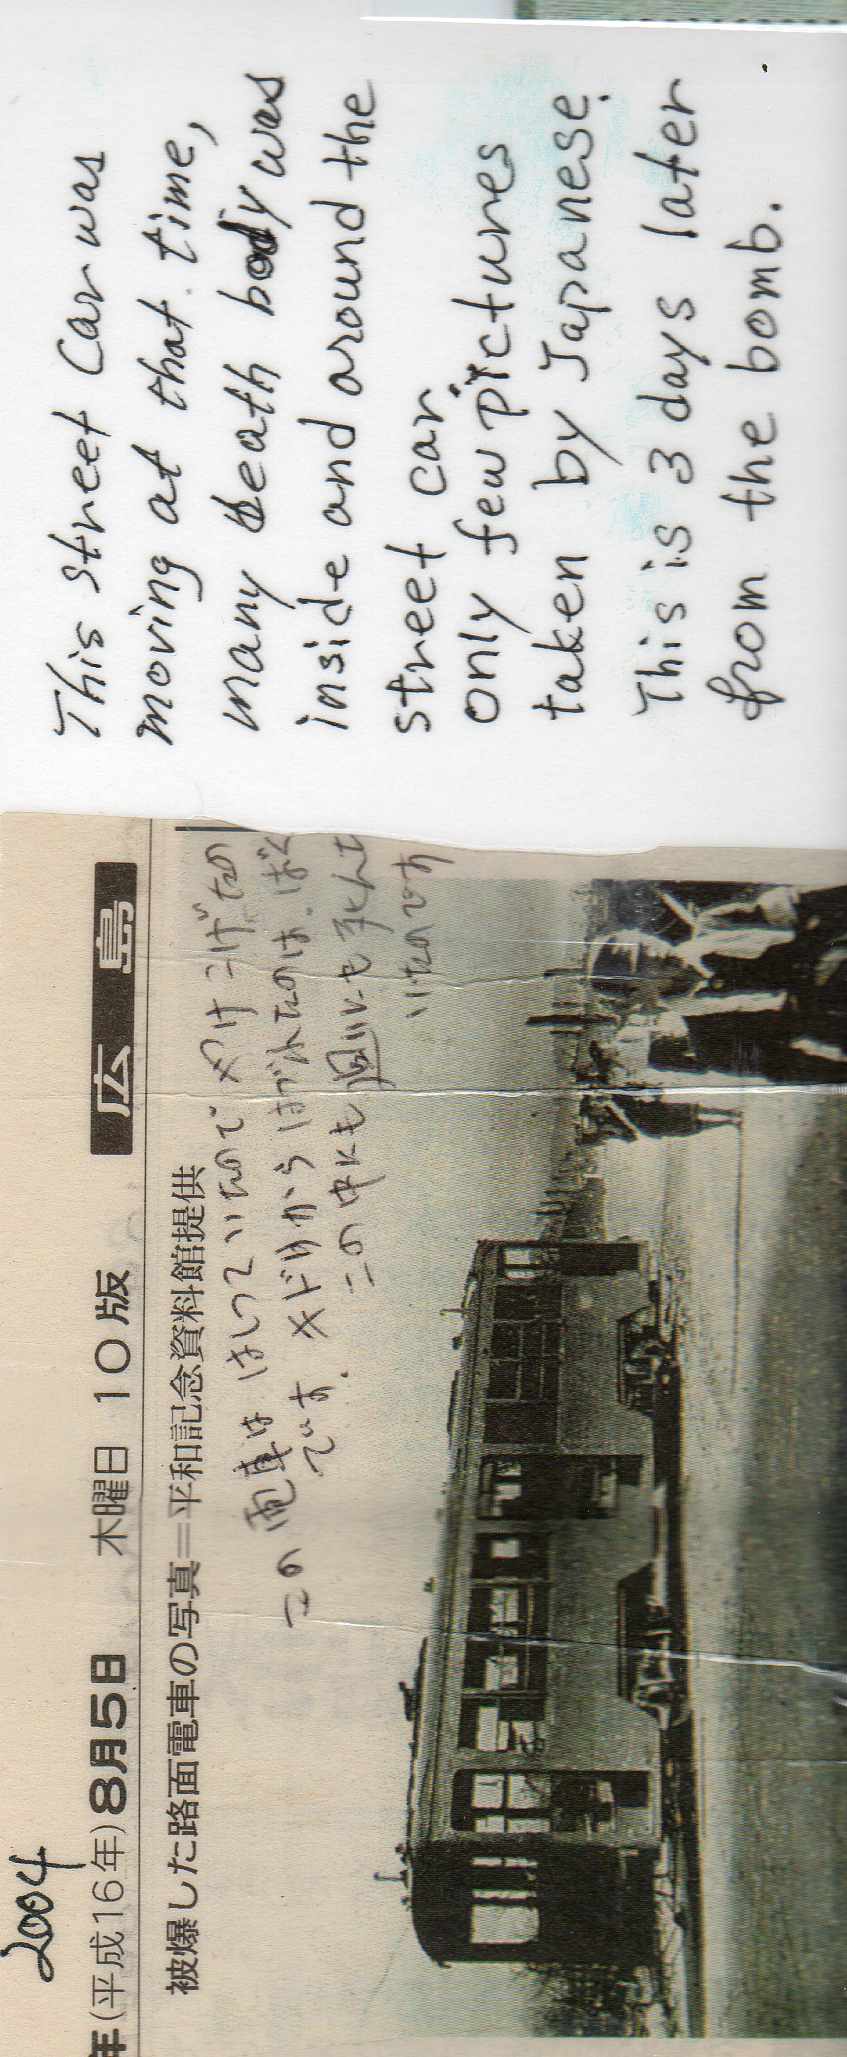 2004
年(平成16年)8月5日 木曜日 10版 広島
被爆した路面電車の写真=平和記念資料館提供
この電車は はしっていたので やけこげたの
です。
この中にも 周りにも 死んで
いたのです
This street car was
moving at that time,
many death body was
inside and around the
street car.
only few pictures
taken by Japanese.
This is 3 days later
from the bomb.